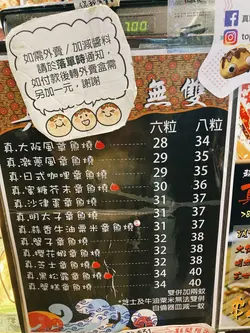 如需外賣 / 加減醬料
請於落單時通知,
如付款後轉外賣盒需
另加一元, 謝謝
無雙
六粒 八粒
真.大阪風章魚燒 28 34
真.激蔥風章魚燒 29 35
真.日式咖哩章魚燒 29 35
真.蜜糖芥末章魚燒 30 36
真.沙律醬章魚燒 31 37
真.明太子章魚燒 31 37
真.蒜香牛油粟米章魚燒 31 37
真.蟹子章魚燒 32 38
真.櫻花蝦章魚燒 32 38
真.芝士章魚燒 32 38
真.黑松露章魚燒 34 40
真.蟹糕章魚燒 34 40
雙併加兩蚊
*芝士及牛油粟米無法雙併
自備器皿減一蚊